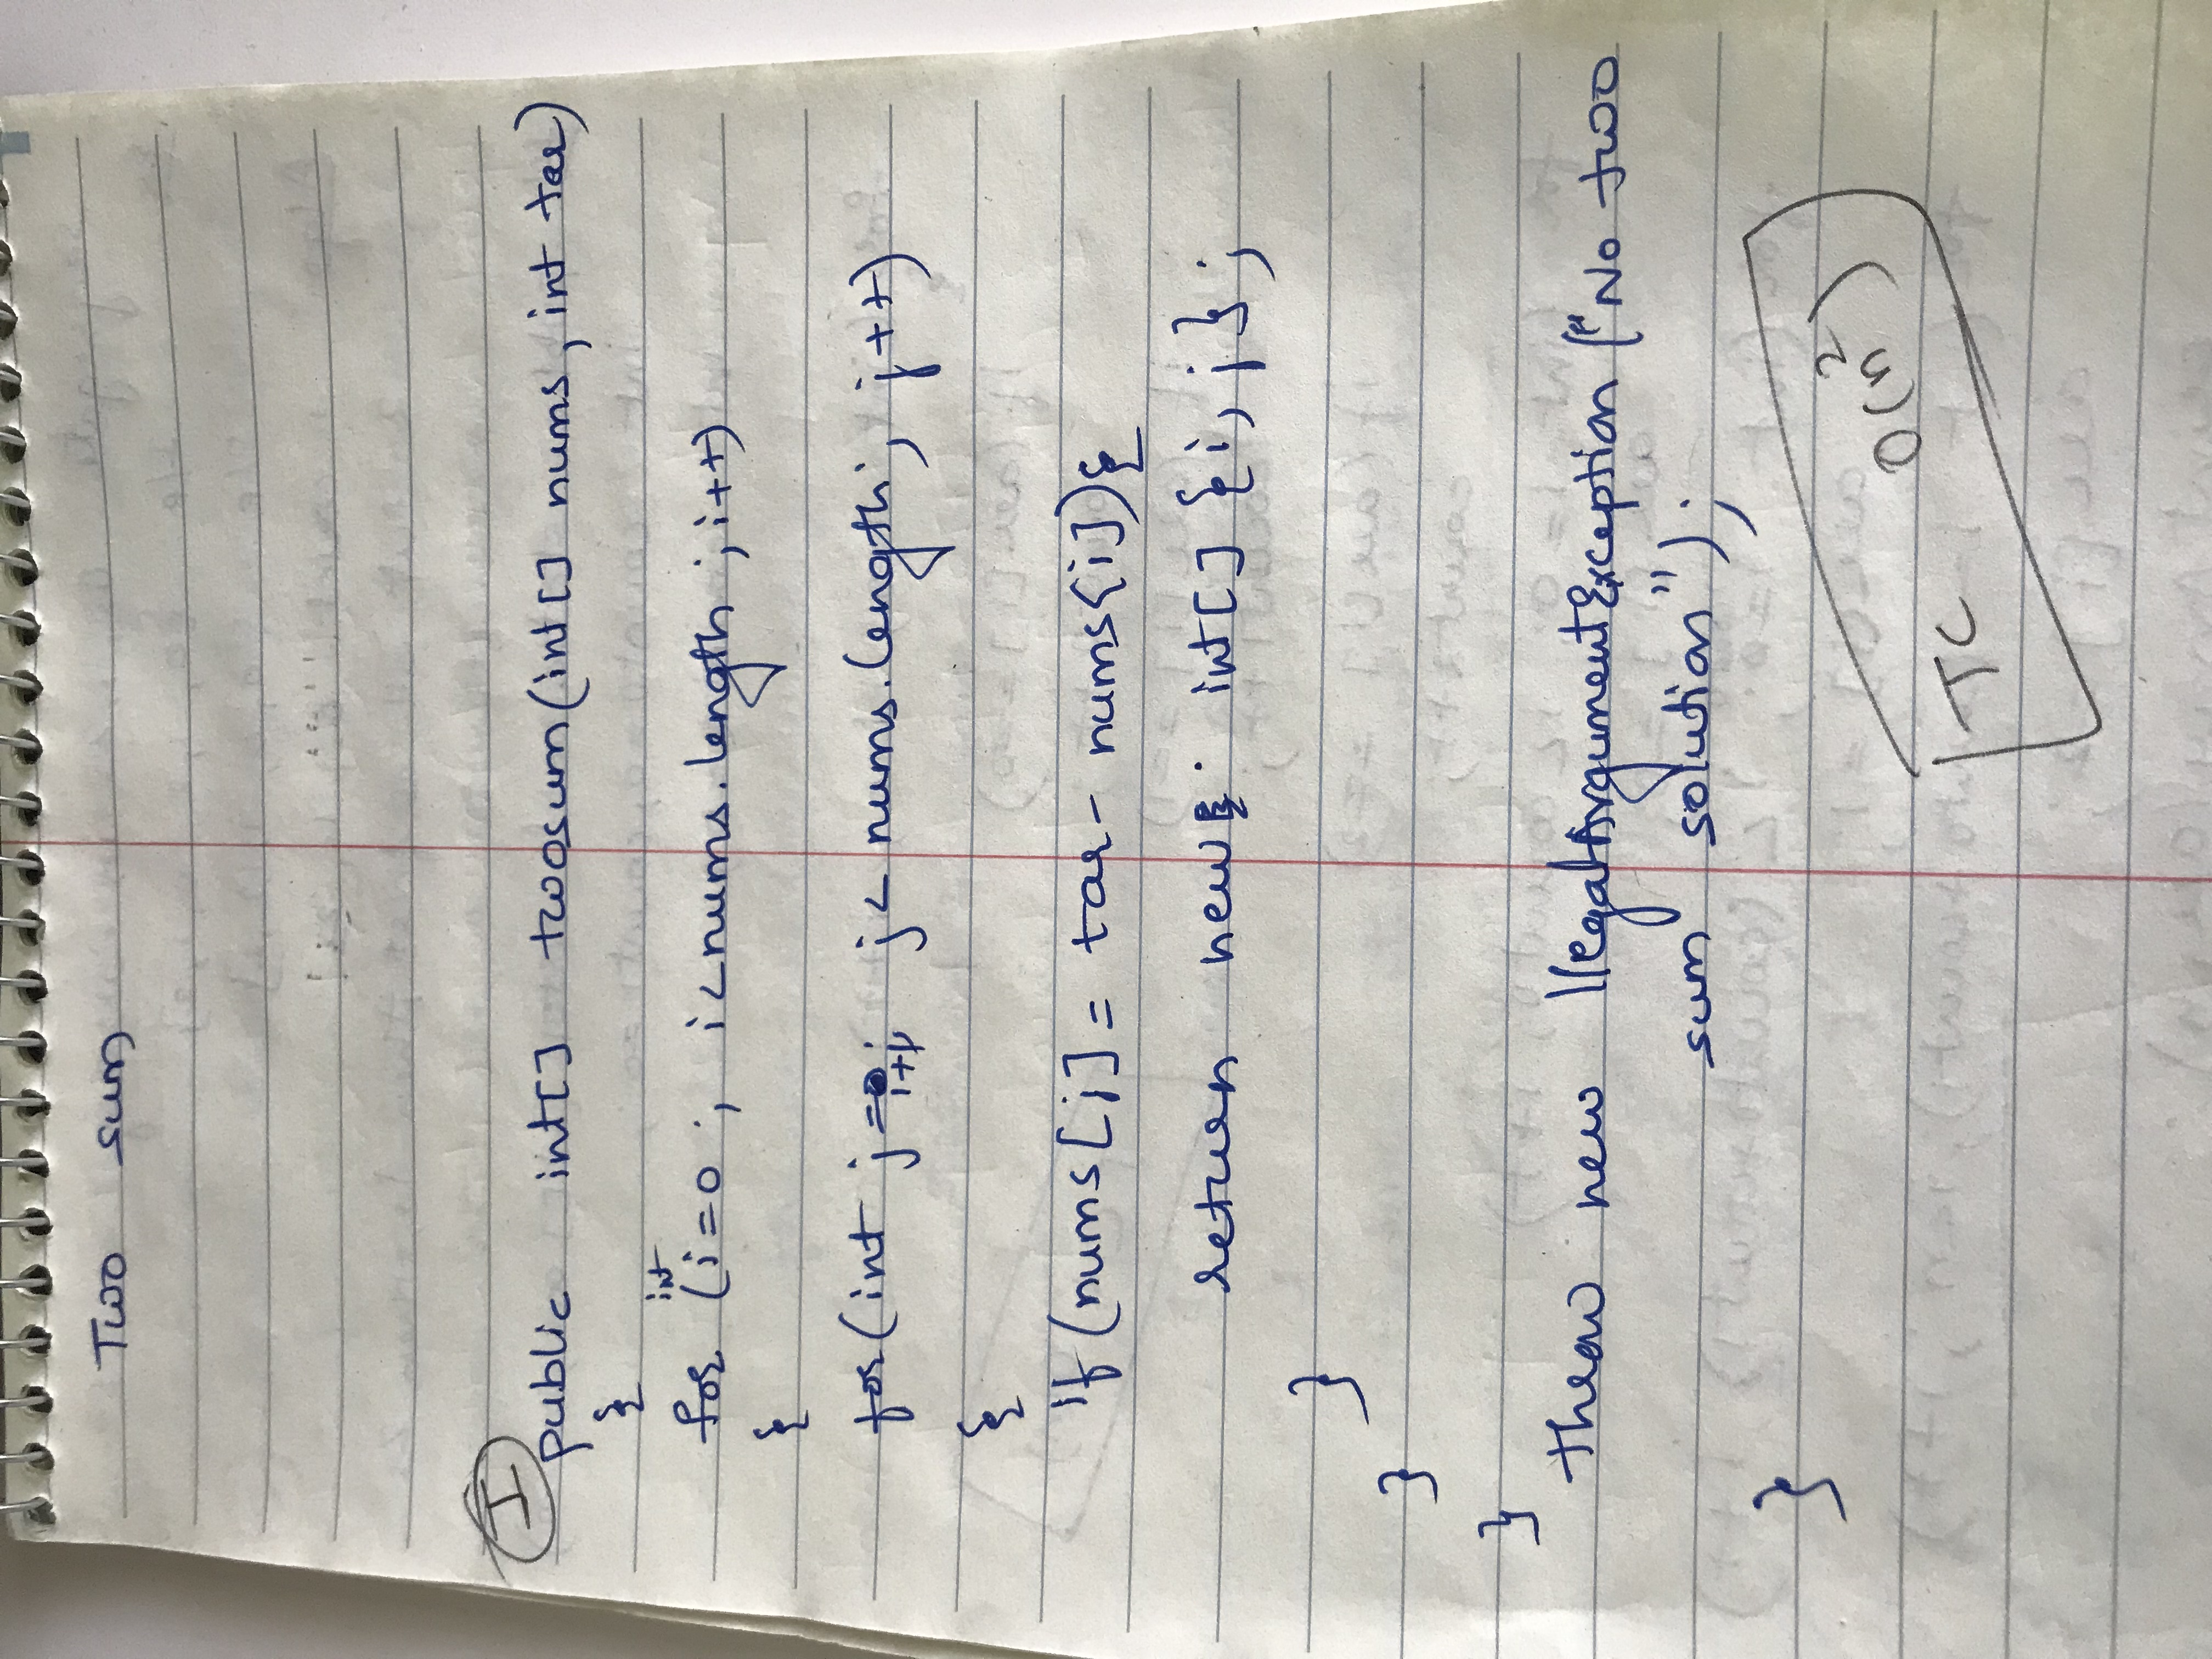 Two sum
I
public int[] twosum(int[] nums, int tar)
{
for (int i=0 ; i<nums.length ; i++)
{
for(int j=i+1; j< nums.length; j++)
{
if (nums[j]= tar- nums{i]){
return new int[] {i, j} ;
}
}
}
throw new IllegalArgumentException ("No two
sum solution");
}
TC O(n²)